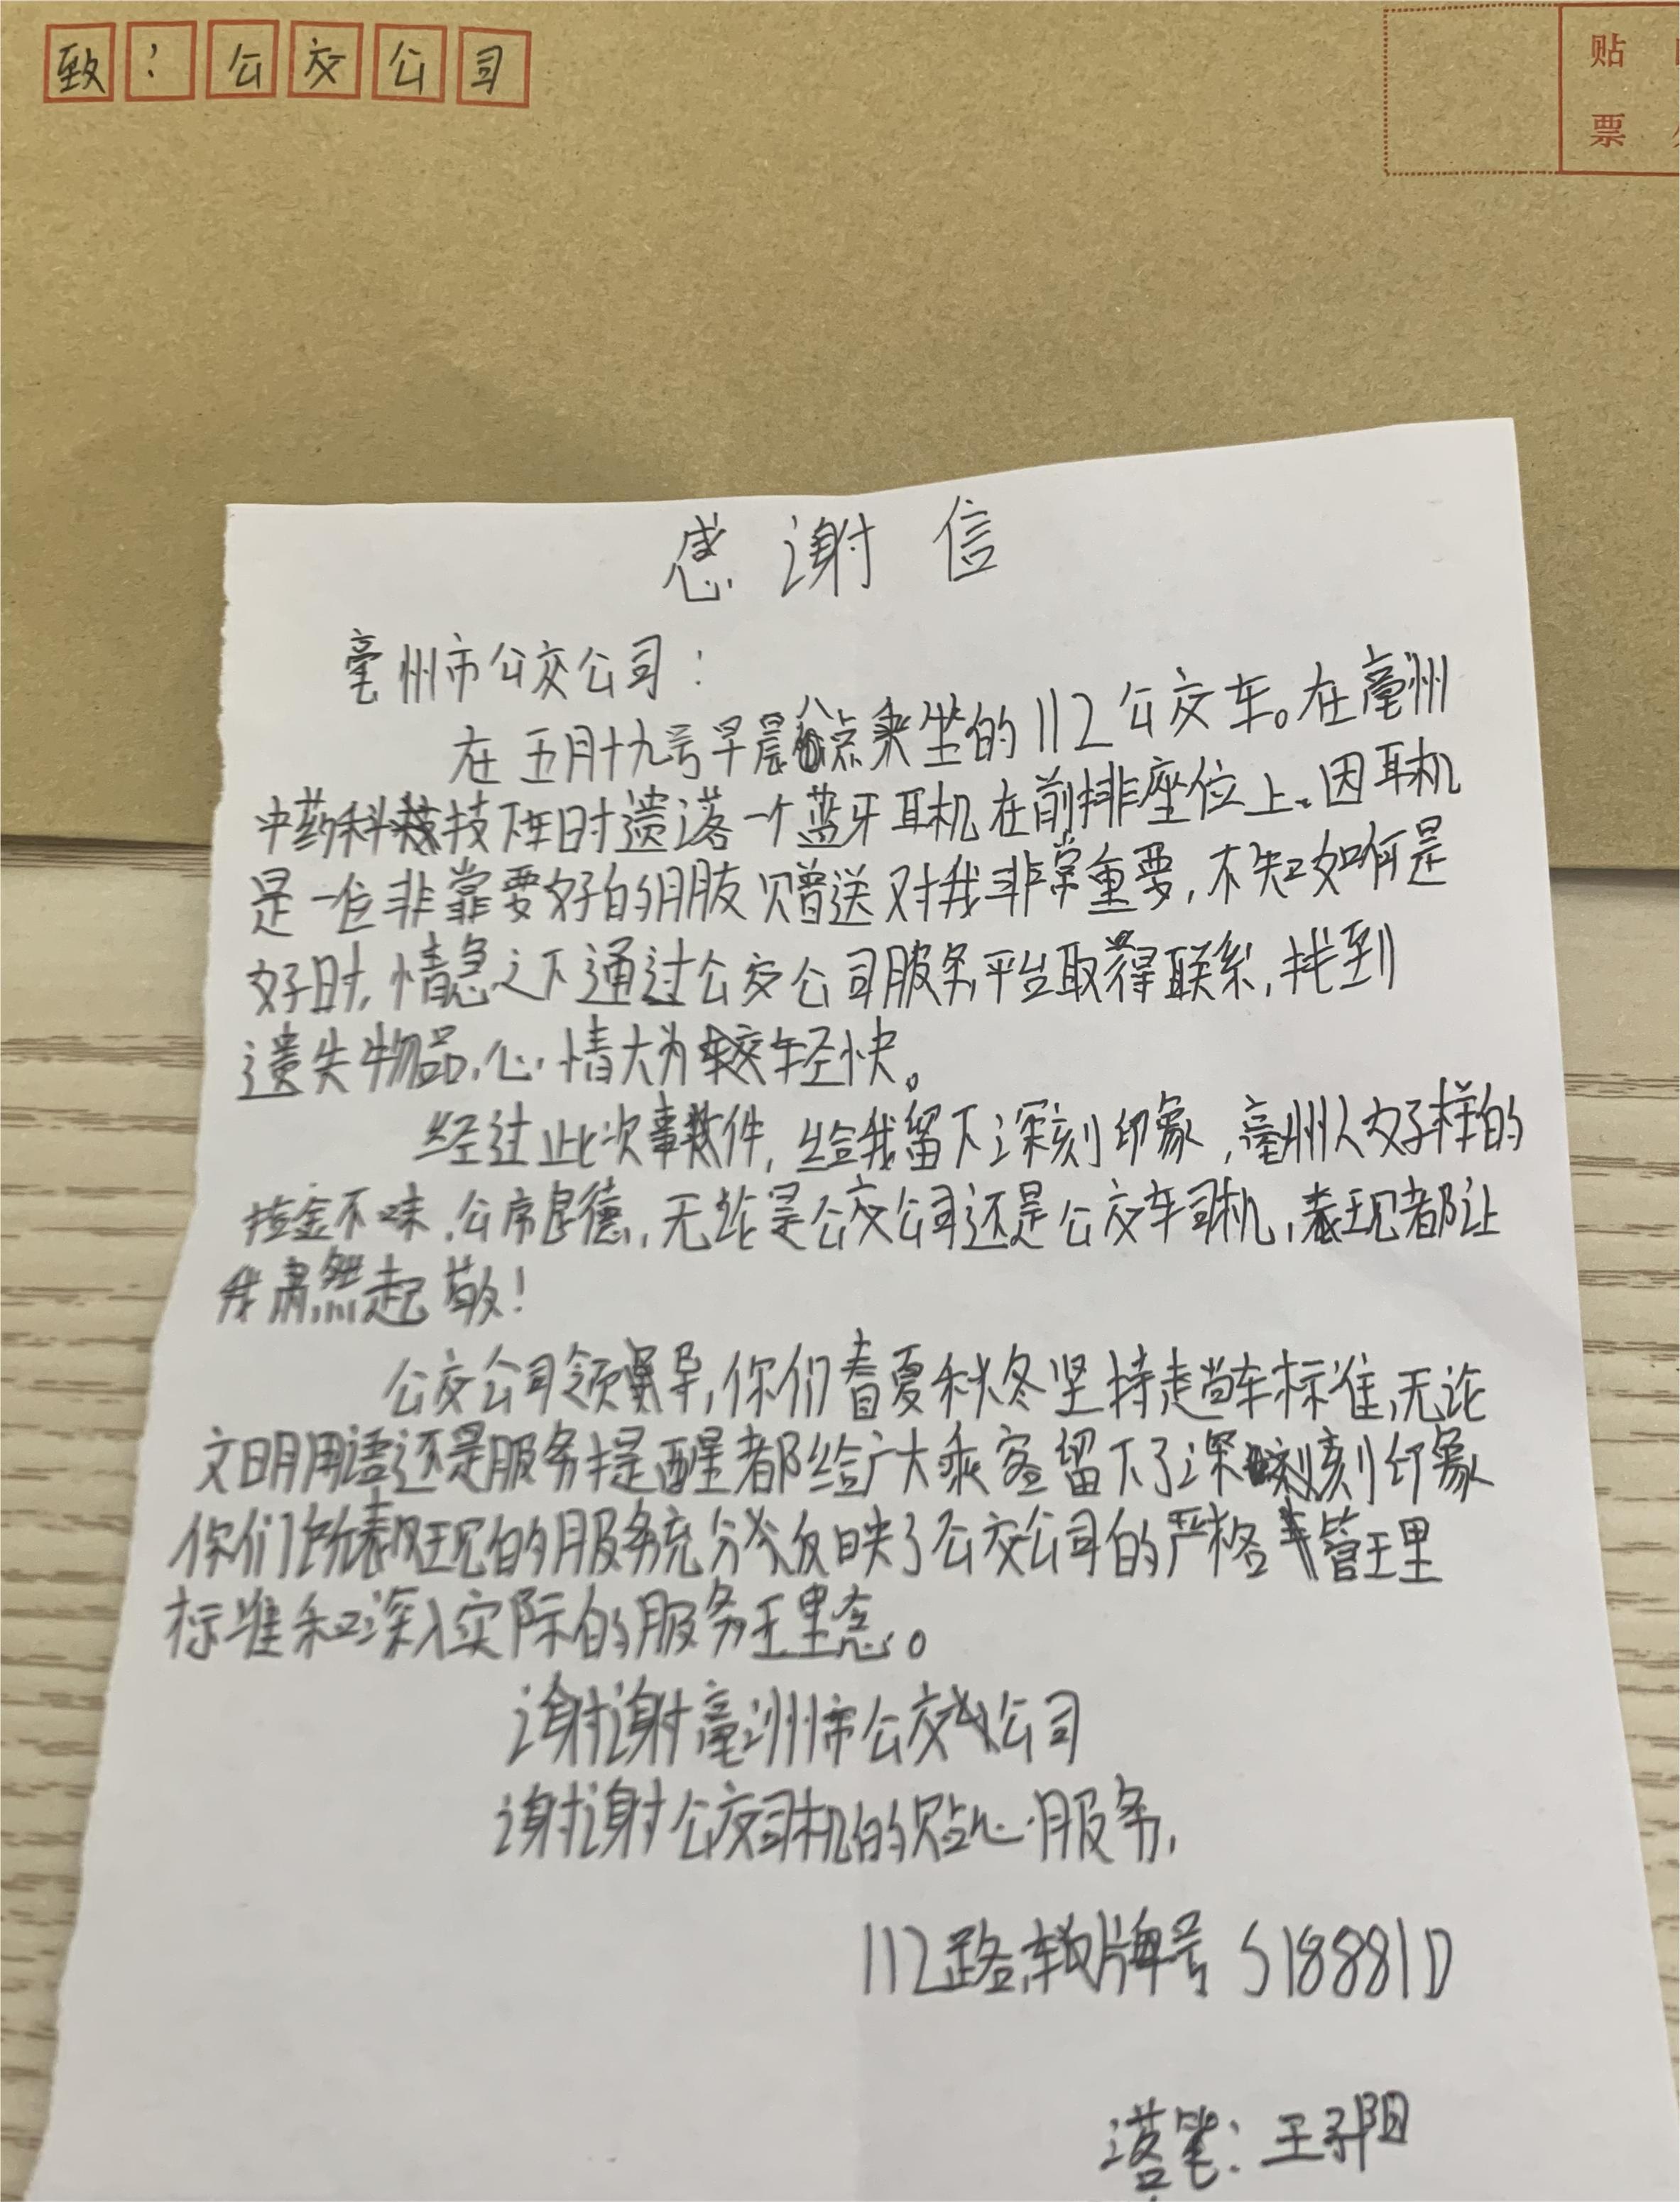 致：公交公司
贴
票
感谢信
亳州市公交公司：
在五月十九号早晨八点乘坐的112公交车。在亳州
中药科技下车时遗落一个蓝牙耳机在前排座位上。因耳机
是一位非常要好的朋友赠送对我非常重要，不知如何是
好时，情急之下通过公交公司服务平台取得联系，找到
遗失物品，心情大为较轻快。
经过此次事件，给我留下深刻印象，亳州人好样的
拾金不昧，公席良德，无论是公交公司还是公交车司机，表现都让
我肃然起敬！
公交公司领导，你们春夏秋冬坚持走当车标准，无论
文明用语还是服务提醒都给广大乘客留下了深刻印象
你们所表现的服务充分反映了公交公司的严格管理
标准和深入实际的服务理念。
谢谢亳洲市公交公司
谢谢公交司机的贴心服务，
112路车牌号S18881D
落笔：王子阳